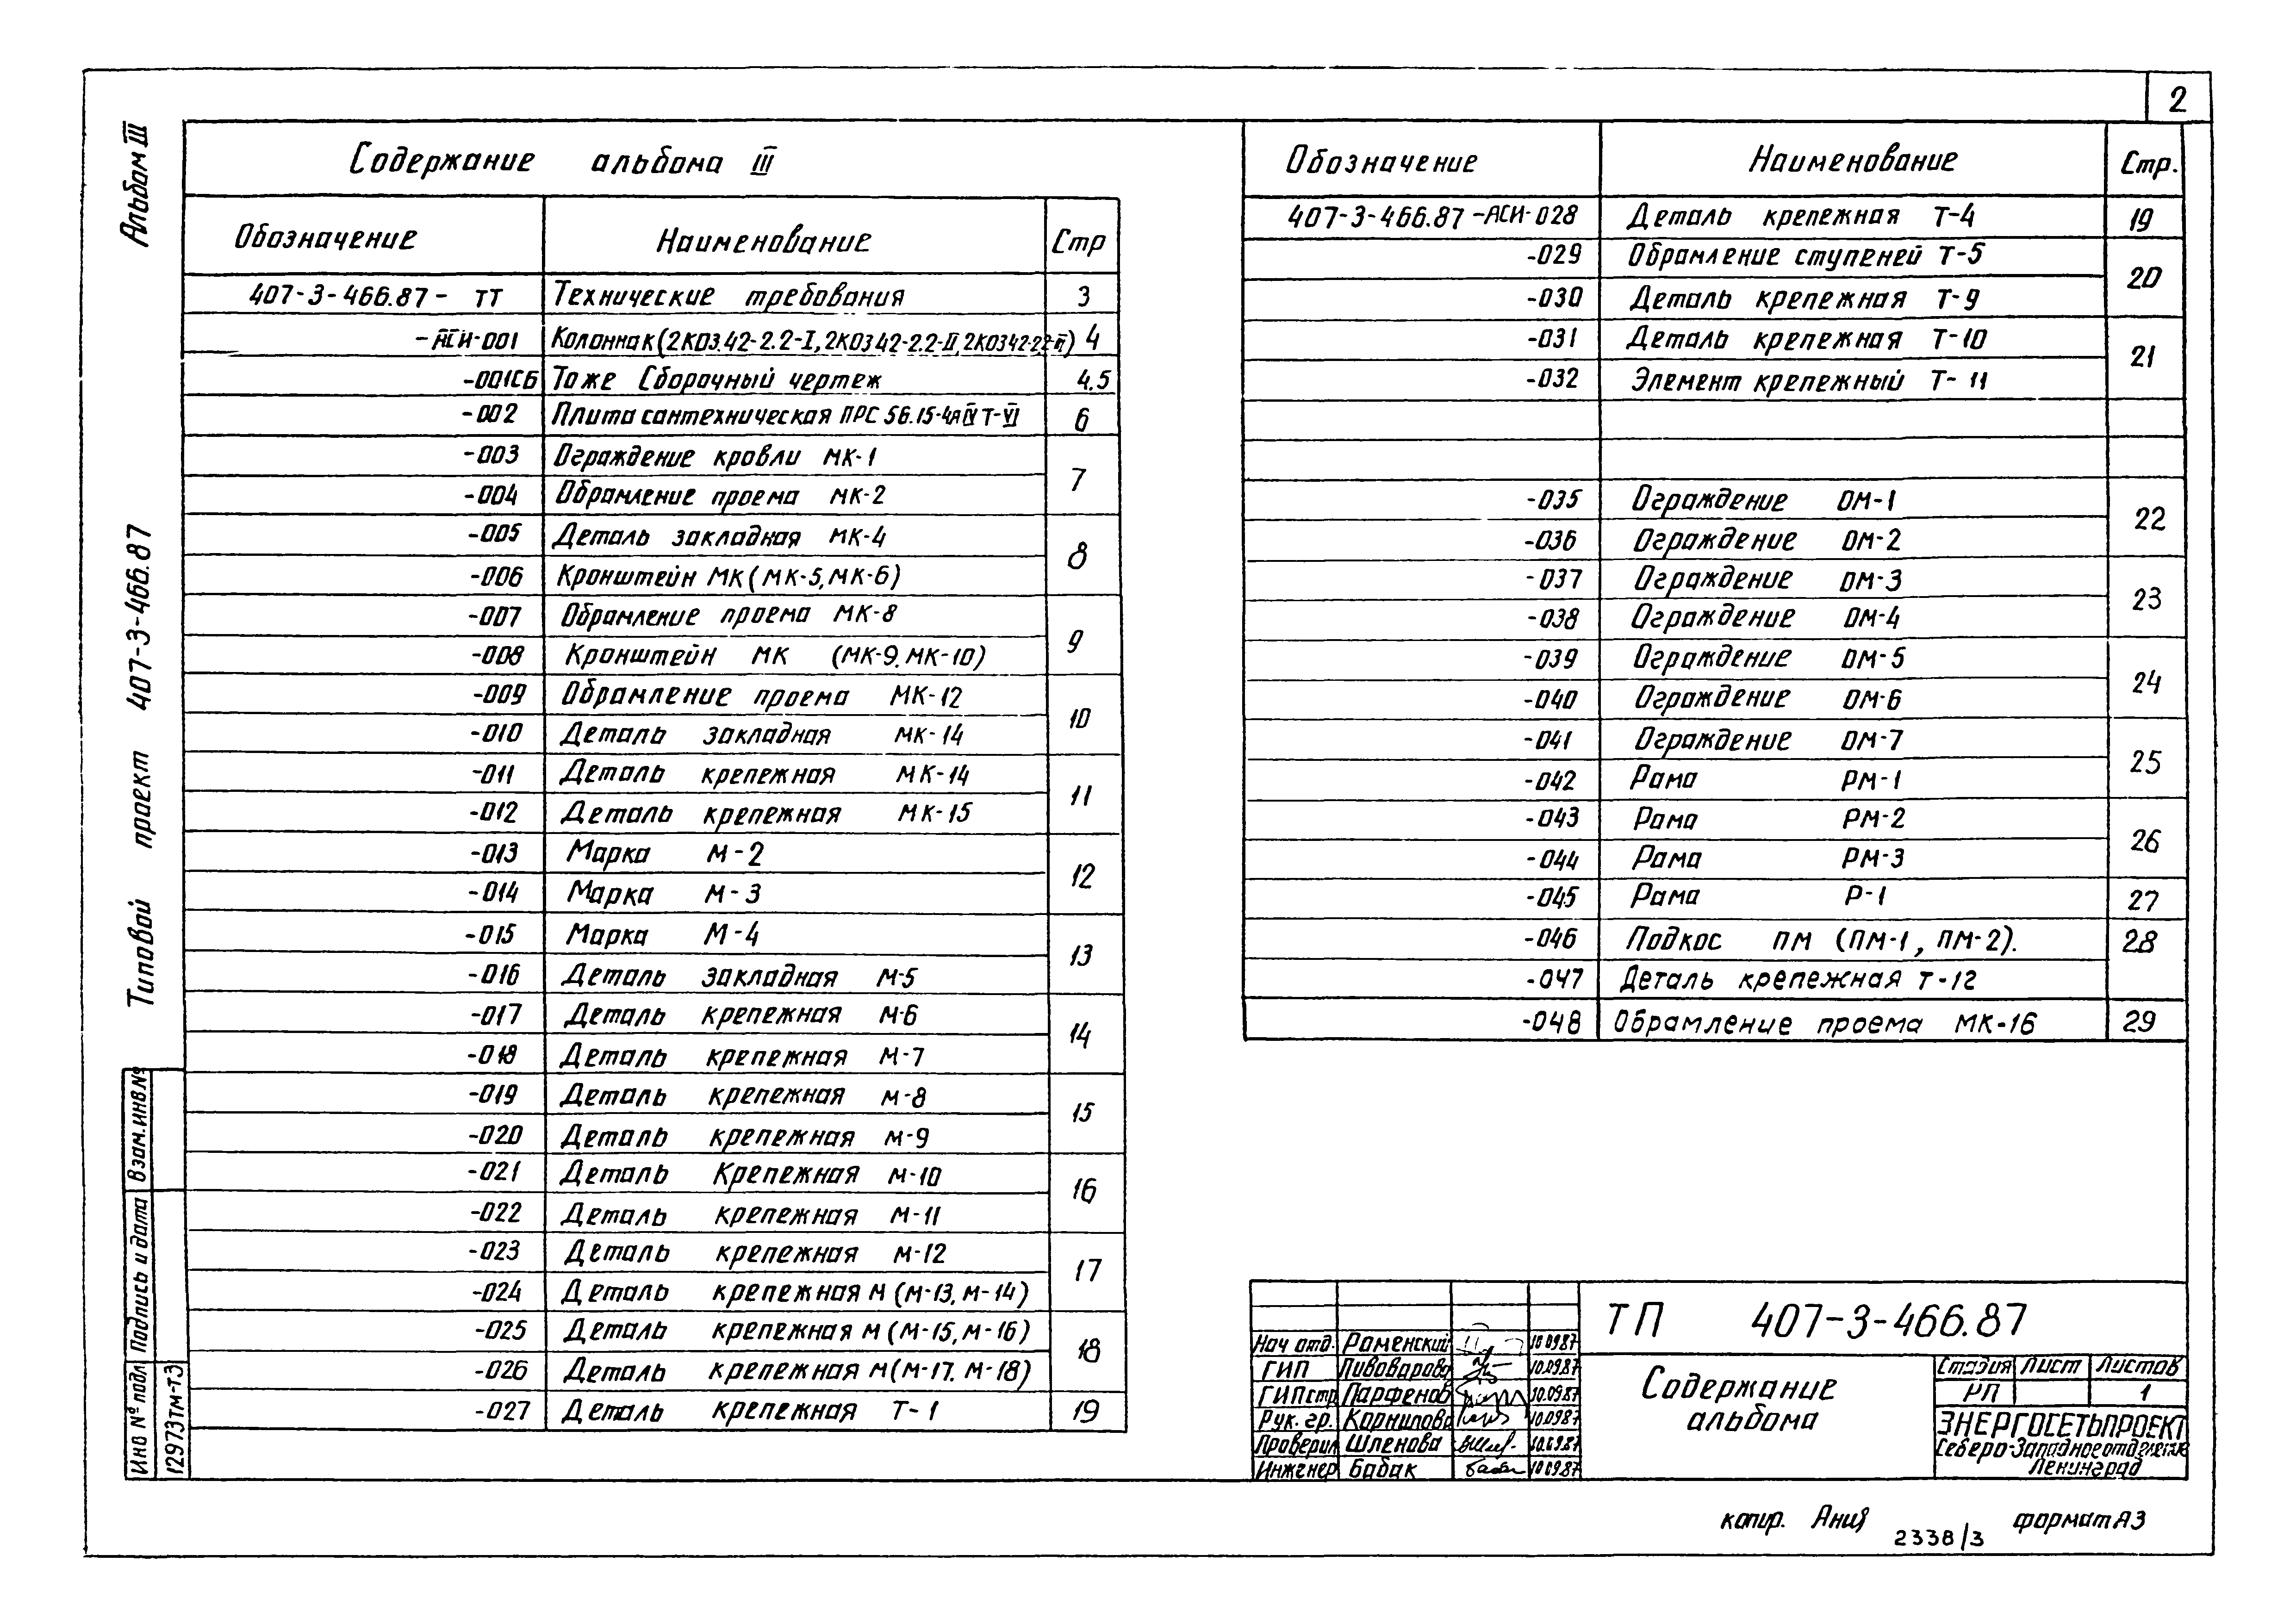 2
Альбом III
Типовой проект 407-3-466.87
Взам.инв.№
Подпись и дата
Инв № подл
12973тм-т3
Содержание альбома III
Обозначение Наименование Стр
407-3-466.87- ТТ Технические требования 3
-АСИ-001 Колонна к (2К03.42-2.2-I, 2К03 42-2.2-II, 2К03 42-2.2-III) 4
-001СБ Тоже Сборочный чертеж 4.5
-002 Плита сантехническая ПРС 56.15-4АIV Т-VI 6
-003 Ограждение кровли МК-1 7
-004 Обрамление проема МК-2
-005 Деталь закладная МК-4 8
-006 Кронштейн МК (МК-5, МК-6)
-007 Обрамление проема МК-8 9
-008 Кронштейн МК (МК-9. МК-10)
-009 Обрамление проема МК-12 10
-010 Деталь закладная МК-14
-011 Деталь крепежная МК-14 11
-012 Деталь крепежная МК-15
-013 Марка М-2 12
-014 Марка М-3
-015 Марка М-4 13
-016 Деталь закладная М-5
-017 Деталь крепежная М-6 14
-018 Деталь крепежная М-7
-019 Деталь крепежная М-8 15
-020 Деталь крепежная М-9
-021 Деталь Крепежная М-10 16
-022 Деталь крепежная М-11
-023 Деталь крепежная М-12 17
-024 Деталь крепежная М (М-13, М-14)
-025 Деталь крепежная М (М-15, М-16) 18
-026 Деталь крепежная М (М-17. М-18)
-027 Деталь крепежная Т-1 19
Обозначение Наименование Стр.
407-3-466.87-АСИ-028 Деталь крепежная Т-4 19
-029 Обрамление ступеней Т-5 20
-030 Деталь крепежная Т-9
-031 Деталь крепежная Т-10 21
-032 Элемент крепежный Т-11
-035 Ограждение ОМ-1 22
-036 Ограждение ОМ-2
-037 Ограждение ОМ-3 23
-038 Ограждение ОМ-4
-039 Ограждение ОМ-5 24
-040 Ограждение ОМ-6
-041 Ограждение ОМ-7 25
-042 Рама РМ-1
-043 Рама РМ-2 26
-044 Рама РМ-3
-045 Рама Р-1 27
-046 Подкос ПМ (ПМ-1, ПМ-2). 28
-047 Деталь крепежная Т-12
-048 Обрамление проема МК-16 29
Нач отд. Раменский 10.09.87
ГИП Пивоварова 10.09.87
ГИП стр Парфенов 10.09.87
Рук. гр. Корнилова 10.09.87
Проверил Шленова 10.09.87
Инженер Бабак 10 09.87
ТП 407-3-466.87
Содержание
альбома
Стадия Лист Листов
РП 1
ЭНЕРГОСЕТЬПРОЕКТ
Северо-Западное отделение
Ленинград
копир. Ания
2338/3
формат А3